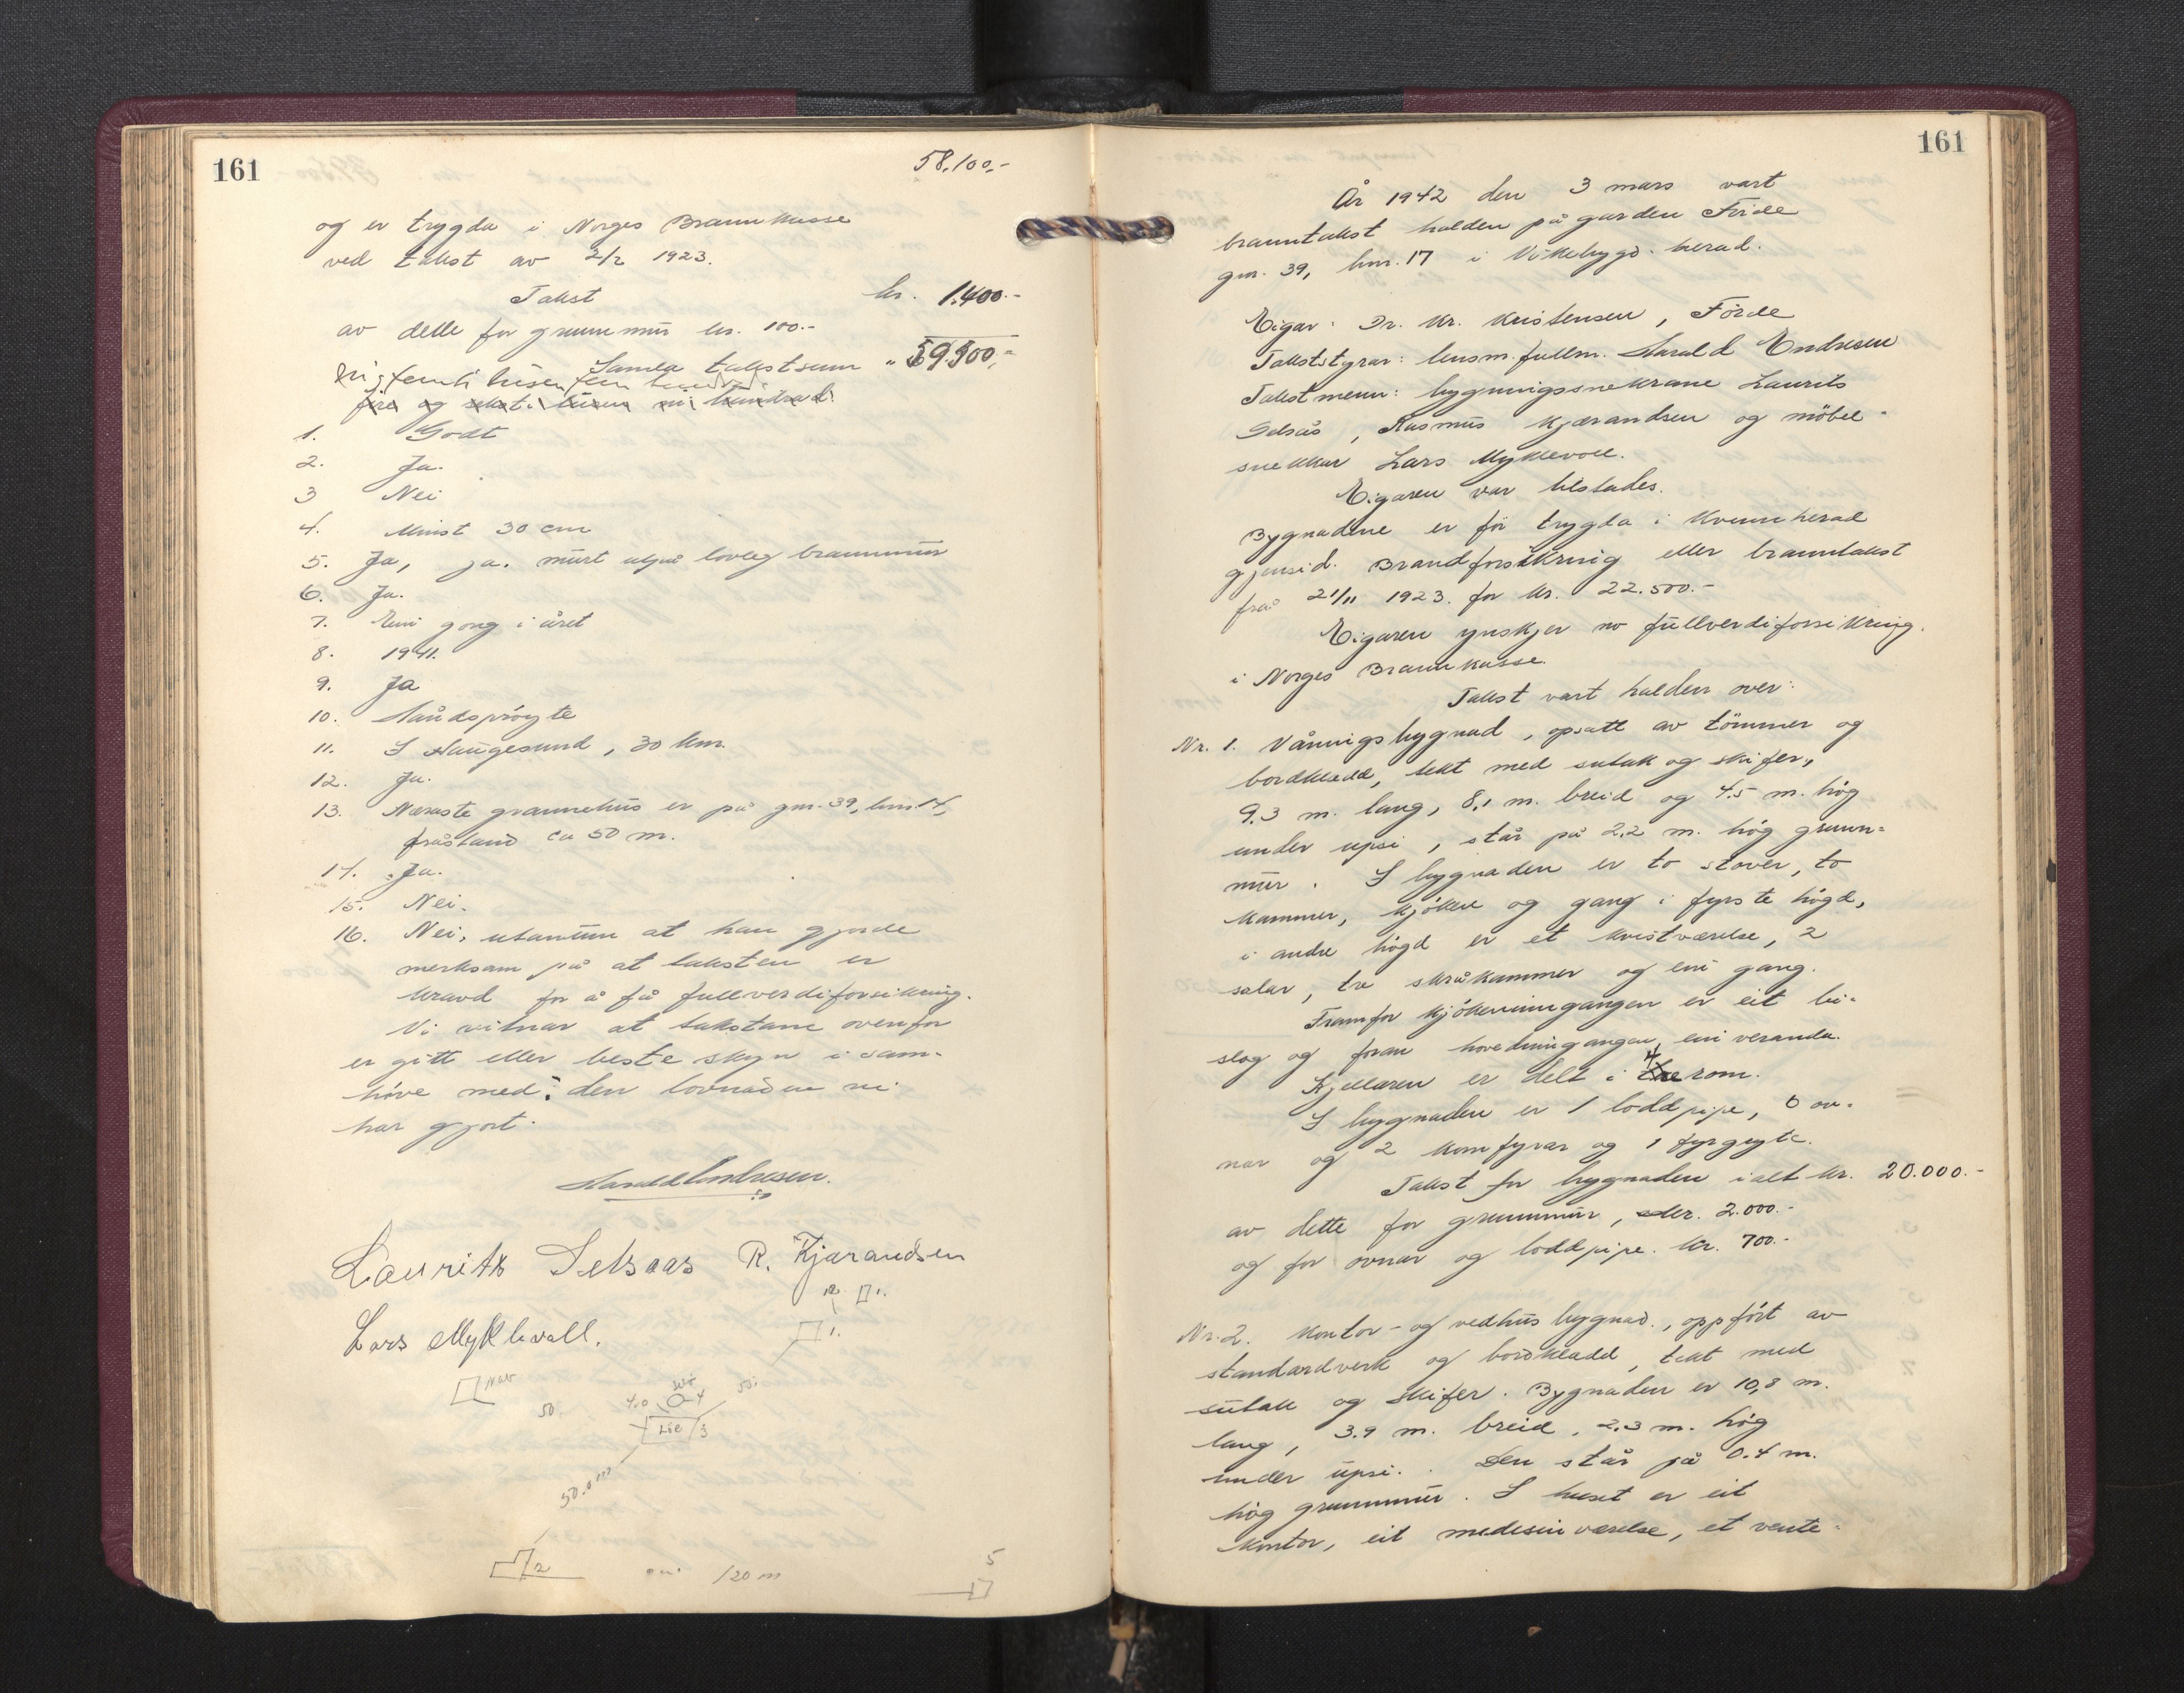 161
58.100.-
og er trygda i Norges Brannkasse
ved takst av 2/2 1923.
Takst kr. 1.400.-
av dette for grunnmur kr. 100.-
Samla takstsum " 59.500.-
ni femti tusen fem hundred
fire og seksti tusen ni hundrad.
1. Godt
2. Ja.
3 Nei
4. Minst 30 cm
5. Ja, ja. murt utpå lovleg brannmur
6. Ja.
7. Ein gong i året
8. 1941.
9. Ja
10. Handsprøyte
11. I Haugesund, 30 km.
12. Ja.
13. Næraste grannehus er på gnr. 39, bnr. 14,
fråstand ca 50 m.
14. Ja.
15. Nei.
16. Nei, utanum at han gjorde
merksam på at taksten er
kravd for å få fullverdiforsikring.
Vi vitnar at takstane ovenfor
er gitt etter beste skyn i sam-
høve med den lovnaden vi
har gjort.
Harald Endresen.
Laurits Selsaas R. Kjærandsen
Lars Myklevoll.
1.
1.
50.
4.0
4
50.
3
50.0 m
2
120 m
5
161
År 1942 den 3 mars vart
branntakst halden på garden Førde
gnr. 39, bnr. 17 i Vikebygd herad.
Eigar: Dr. Kr. Kristensen, Førde
Takststyrar: lensm.fullm. Harald Endresen
Takstmenn: bygningssnekrane Laurits
Selsås, Rasmus Kjærandsen og møbel-
snekkar Lars Myklevoll.
Eigaren var tilstades.
Bygnadene er før trygda i Kvinnherad
gjensid. Brandforsikring etter branntakst
frå 21/11 1923. for kr. 22.500.-
Eigaren ynskjer no fullverdiforsikring.
i Norges Brannkasse.
Takst vart halden over:
Nr. 1. Våningsbygnad, opsatt av tømmer og
bordkledd, tekt med sutak og skifer,
9.3 m. lang, 8,1 m. breid og 4.5 m. høg
under upsi, står på 2.2 m. høg grunn-
mur. I bygnaden er to stover, to
kammer, kjøken og gang i fyrste høgd,
i andre høgd er et kvistværelse, 2
salar, tre skråkammer og ein gang.
Framfor kjøkeninngangen er eit bi-
slag og foran hovedinngangen ein veranda.
Kjellaren er delt i tre 4 rom.
I bygnaden er 1 loddpipe, 6 ov-
nar og 2 komfyrar og 1 fyrgryte.
Takst for bygnaden i alt kr. 20.000.-
av dette for grunnmur, kr. 2.000.-
og for ovnar og loddpipe. kr. 700.-
Nr. 2. Kontor- og vedhusbygnad., oppført av
standardverk og bordkledd, tekt med
sutak og skifer. Bygnaden er 10,8 m.
lang, 3.9 m. breid, 2.3 m. høg
under upsi. Den står på 0.4 m.
høg grunnmur. I huset er eit
kontor, eit medesinværelse, et vente-